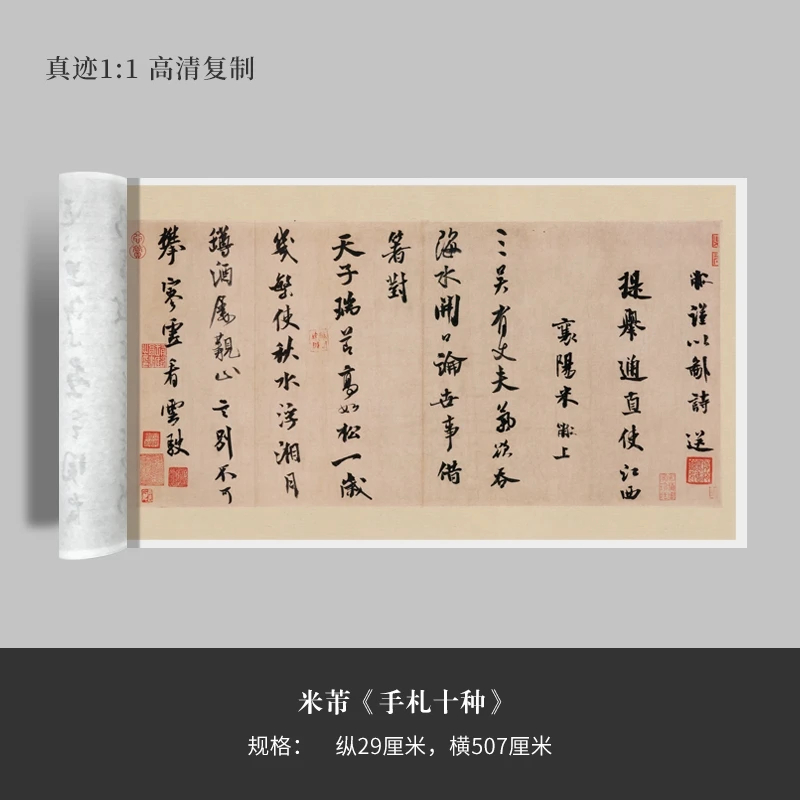 真迹1:1 高清复制
黻謹以鄙詩送
提舉通直使江西
襄陽米黻上
三吴有丈夫氣欲吞
海水開口論世事借
箸對
天子瑞節高如松一歲
幾繁使秋水浮湘月
蹲酒屬親山之別不可
攀寒雲看雲駛
米芾《手札十种》
规格： 纵29厘米，横507厘米